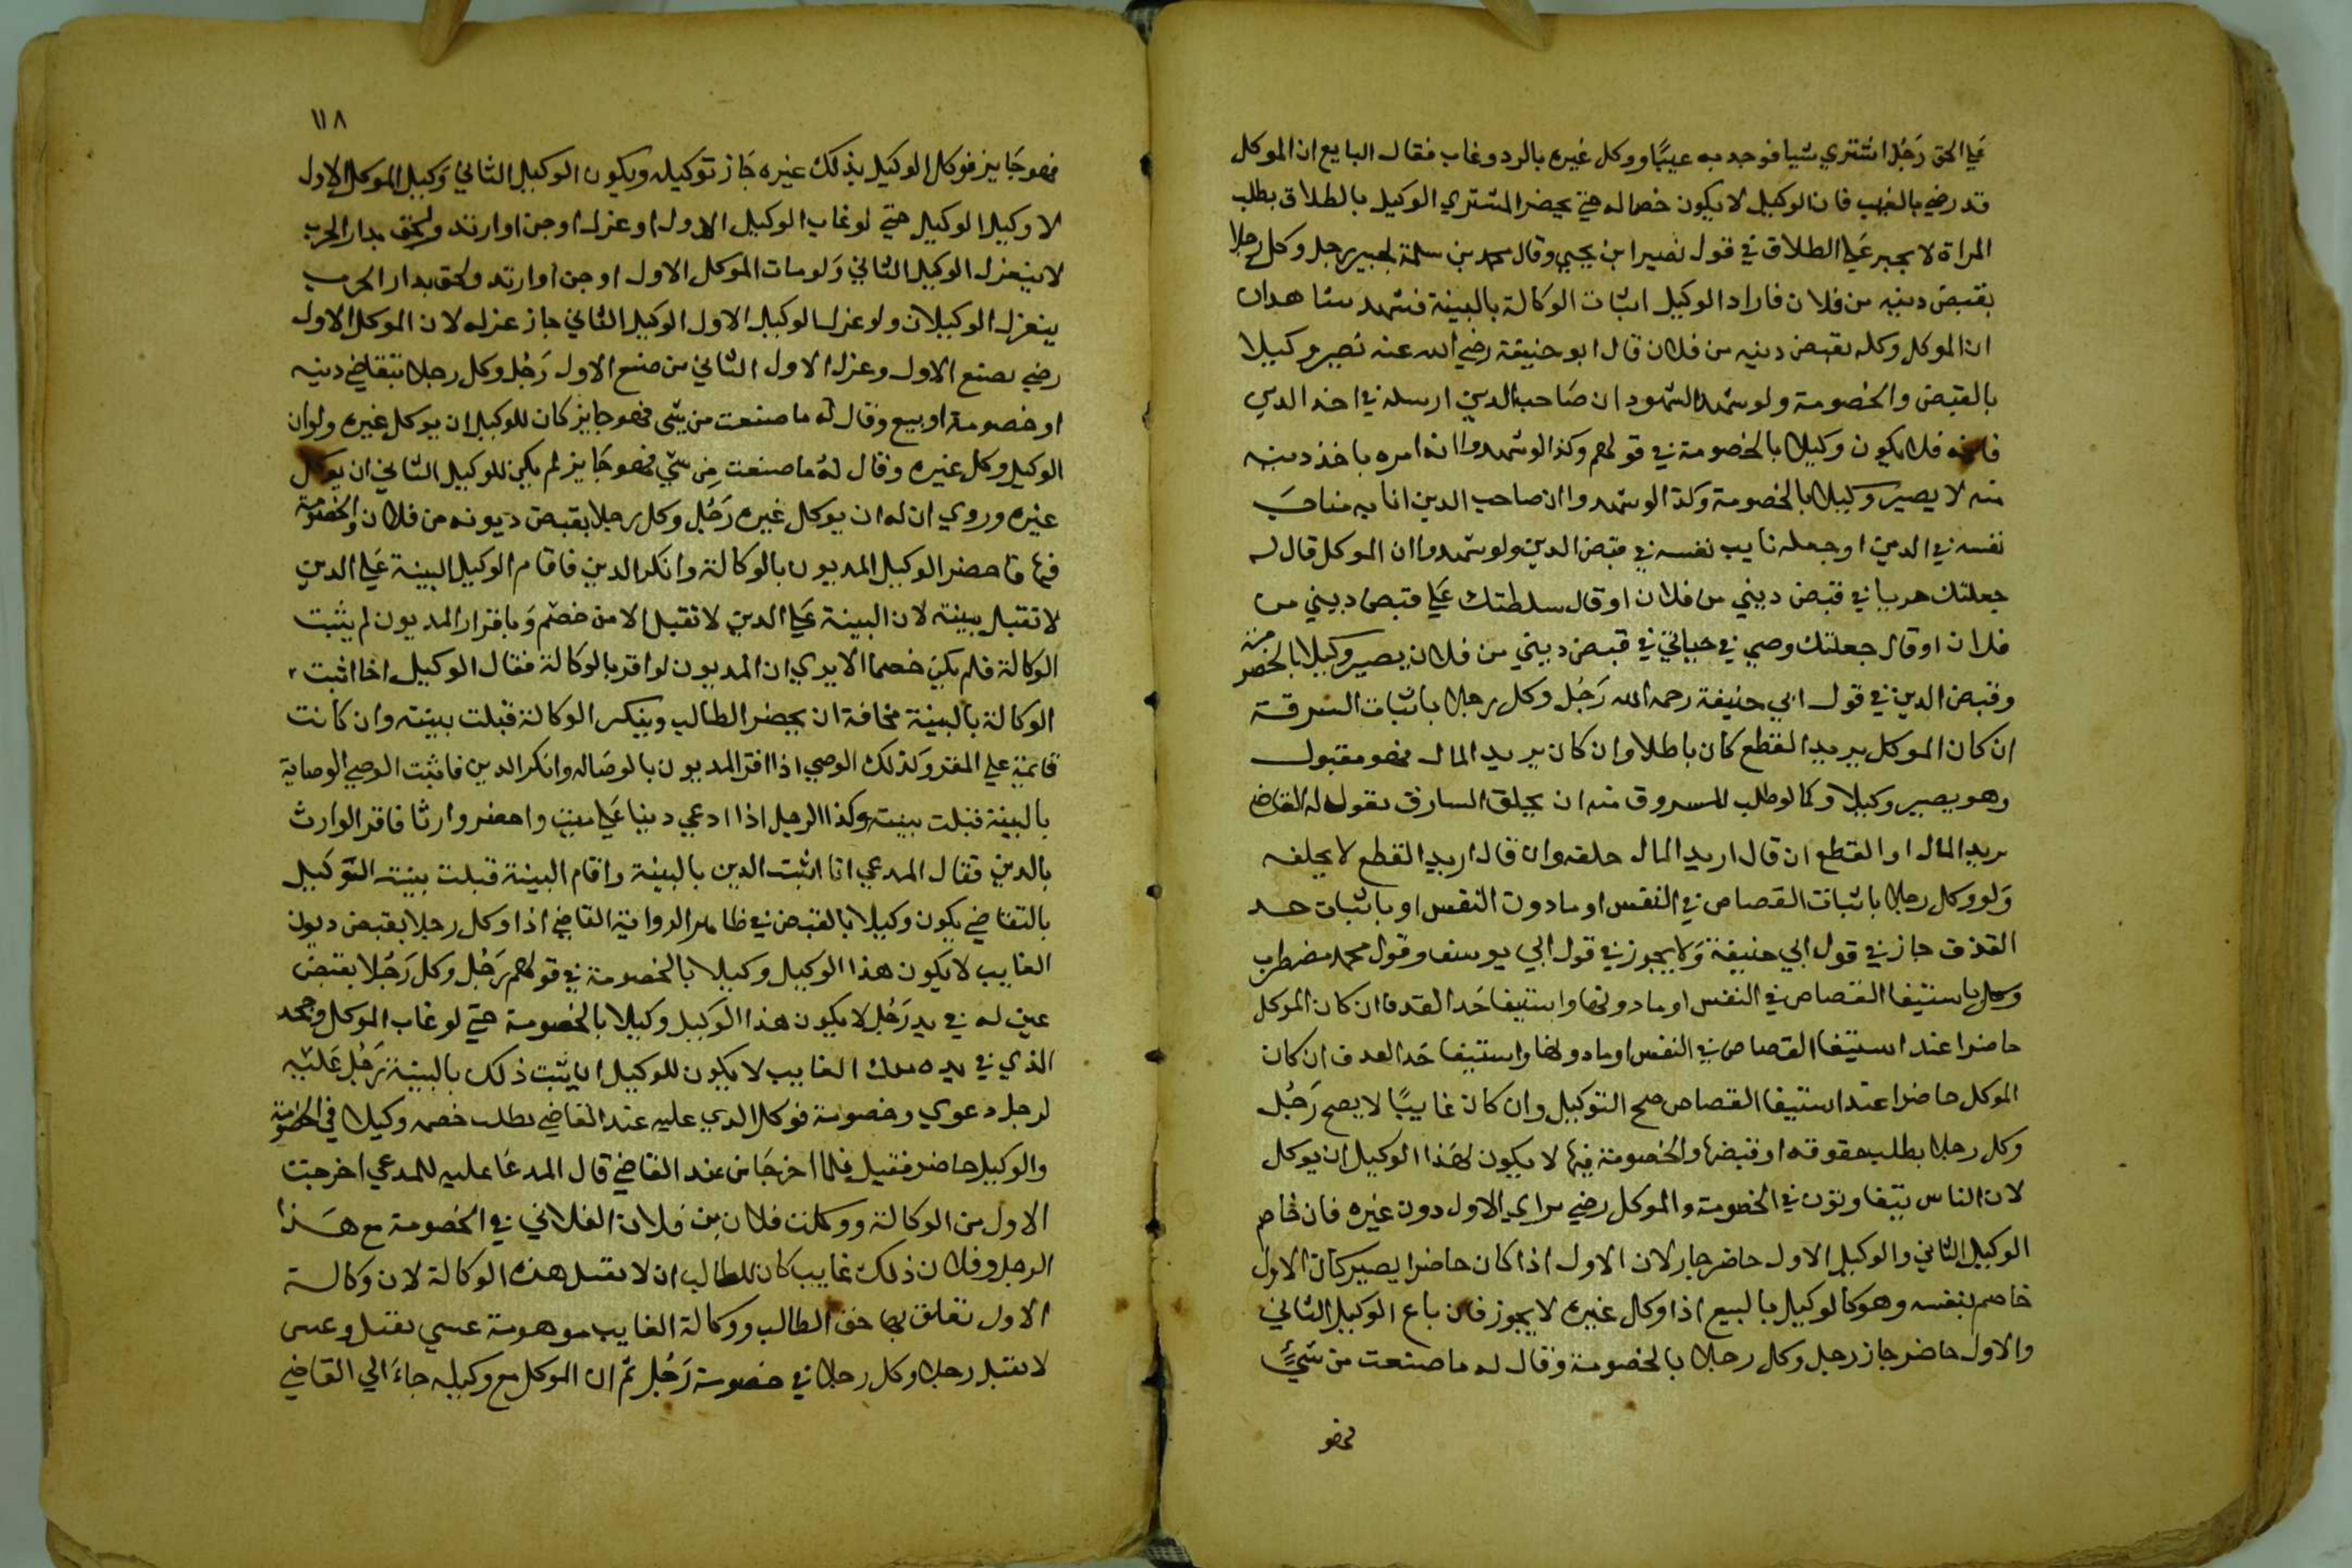 علي الحق رَجُل اشتري شيا فوجد به عيبًا ووكل غيره بالرد وغاب فقال البايع ان الموكل
قد رضي بالعيب فان الوكيل لا يكون خصما له حتي يحضر المشتري الوكيل بالطلاق بطلب
المراة لا يجبر علي الطلاق في قول نصير ابن يحيي وقال محمد بن سلمة يجبر رجل وكل رجلا
بقبض دينه من فلان فاراد الوكيل اثبات الوكالة بالبينة فشهد شاهدان
ان الموكل وكله بقبض دينه من فلان قال ابو حنيفة رضي الله عنه يصير وكيلا
بالقبض والخصومة ولو شهد الشهود ان صَاحب الدين ارسله في اخذ الدين
فلا يكون وكيلا بالخصومة في قولهم وكذا لو شهدوا انه امره باخذ دينه
منه لا يصير وكيلا بالخصومة وكذا لو شهدوا ان صاحب الدين انابه مناب
نفسه في الدين او جعله نايب نفسه في قبض الدين ولو شهدوا ان الموكل قال له
جعلتك جريا في قبض ديني من فلان او قال سلطتك علي قبض ديني من
فلان او قال جعلتك وصيي في حياتي في قبض ديني من فلان يصير وكيلا بالخصومة
وقبض الدين في قول ابي حنيفة رحمه الله رَجُل وكل رجلا باثبات السرقة
ان كان الموكل يريد القطع كان باطلا وان كان يريد المال فهو مقبول
وهو يصير وكيلا وكما لو طلب المسروق منه ان يحلف السارق يقول له القاضي
تريد المال او القطع ان قال اريد المال حلفه وان قال اريد القطع لا يحلفه
وَلو وكل رجلا باثبات القصاص في النفس او ما دون النفس او باثبات حد
القذف جاز في قول ابي حنيفة وَلا يجوز في قول ابي يوسف وقول محمد مضطرب
وكل باستيفا القصاص في النفس او ما دونها واستيفا حَد القذف ان كان الموكل
حاضرا عند استيفا القصاص في النفس او ما دونها واستيفا حَد القذف ان كان
الموكل حاضرا عند استيفا القصاص صح التوكيل وان كان غايبًا لا يصح رَجُل
وكل رجلا بطلب حقوقه او قبضها والخصومة فيها لا يكون لهذا الوكيل ان يوكل
لان الناس يتفاوتون في الخصومة والموكل رضي براي الاول دون غيره فان خاصم
الوكيل الثاني والوكيل الاول حاضر جاز لان الاول اذا كان حاضرا يصير كان الاول
خاصم بنفسه وهو كالوكيل بالبيع اذا وكل غيره لا يجوز فان باع الوكيل الثاني
والاول حاضر جاز رجل وكل رجلا بالخصومة وقال له ما صنعت من شيءٍ
فهو
١١٨
فهو جَايز فوكل الوكيل بذلك غيره جَاز توكيله ويكون الوكيل الثاني وَكيل الموكل الاول
لا وكيل الوكيل حتي لو غاب الوكيل الاول او عزل او جن او ارتد ولحق بدار الحرب
لا ينعزل الوكيل الثاني وَلو مات الموكل الاول او جن او ارتد ولحق بدار الحرب
ينعزل الوكيلان ولو عزل الوكيل الاول الوكيل الثاني جاز عزله لان الموكل الاول
رضي بصنع الاول وعزل الاول الثاني من صنع الاول رَجُل وكل رجلا بتقاضي دينه
او خصومة او بيع وقال له ما صنعت من شي فهو جايز كان للوكيل ان يوكل غيره ولو ان
الوكيل وكل غيره وقال لهُ ما صنعت مِن شي فهو جَايز لم يكن للوكيل الثاني ان يوكل
غيره وروي ان له ان يوكل غيره رَجُل وكل رجلا بقبض ديونه من فلان والخصومة
فيها فاحضر الوكيل المديون بالوكالة وانكر الدين فاقام الوكيل البينة علي الدين
لا تقبل بينته لان البينة علي الدين لا تقبل الا من خصم وَباقرار المديون لم يثبت
الوكالة فلم يكن خصما الا يري ان المديون لو اقر بالوكالة فقال الوكيل اخا اثبت
الوكالة بالبينة مخافة ان يحضر الطالب وينكر الوكالة قبلت بينته وان كانت
قايمة علي المقر وَكذلك الوصي اذا اقر المديون بالوصاله وانكر الدين فاثبت الوصي الوصاية
بالبينة قبلت بينته وكذا الرجل اذا ادعي دينا علي ميت واحضر وارثا فاقر الوارث
بالدين فقال المدعي انا اثبت الدين بالبينة واقام البينة قبلت بينته التوكيل
بالتقاضي يكون وكيلا بالقبض في ظاهر الرواية القاضي اذا وكل رجلا بقبض ديون
الغايب لا يكون هذا الوكيل وكيلا بالخصومة في قولهم رَجُل وكل رَجُلا بقبض
عين له في يد رَجُل لا يكون هذا الوكيل وكيلا بالخصومة حتي لو غاب الموكل وجحد
الذي في يده ملك الغايب لا يكون للوكيل ان يثبت ذلك بالبينة رَجُل عَليه
لرجل دعوي وخصومة فوكل الذي عليه عند القاضي بطلب خصمه وكيلا في الخصومة
والوكيل حاضر فقبل فلما اخرجَا من عند القاضي قال المدعَا عليه للمدعي اخرجت
الاول من الوكالة ووكلت فلان بن فلان الفلاني في الخصومة مع هَذا
الرجل وفلان ذلك غايب كان للطالب ان لا يقبل هذه الوكالة لان وكالة
الاول تعلق بها حق الطالب ووكالة الغايب موهومة عسي يقبل وعسي
لا يقبل رجل وكل رجلا في خصومة رَجُل ثم ان الموكل مع وكيله جاءَ الي القاضي